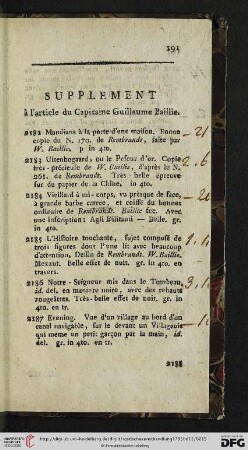 391
SUPPLEMENT
à l'article du Capitaine Guillaume Baillie.
2182 Mendians à la porte d'une maison. Bonne
copie du N. 170. de Rembrandt, faite par
W. Baillie, p in 4to.
2183 Uitenbogaerd, ou le Peseur d'or. Copie
très-précieuse de W. Baillie, d'après le N.
261. de Rembrandt. Très-belle épreuve
sur du papier de la Chine, in 4to.
2184 Vieillard à mi-corps, vu presque de face,
à grande barbe carrée, et coiffé du bonnet
ordinaire de Rembrandt. Baillie fec. Avec
une inscription: Agli Dilitanti — Bulle. gr.
in 4to.
2185 L'Histoire touchante, sujet composé de
trois figures dont l'une lit avec beaucoup
d'attention, Dessin de Rembrandt. W. Baillie,
Mezzot. Belle effet de nuit. gr. in 4to. en
travers.
2186 Notre-Seigneur mis dans le Tombeau,
id. del. en manière noire, avec des rehauts
rougeâtres. Très-belle effet de nuit. gr. in
4to. en tr.
2187 Evening. Vue d'un village au bord d'un
canal navigable, sur le devant un Villageois
qui mene un petit garçon par la main, id.
del. gr. in 4to. en tr.
2188